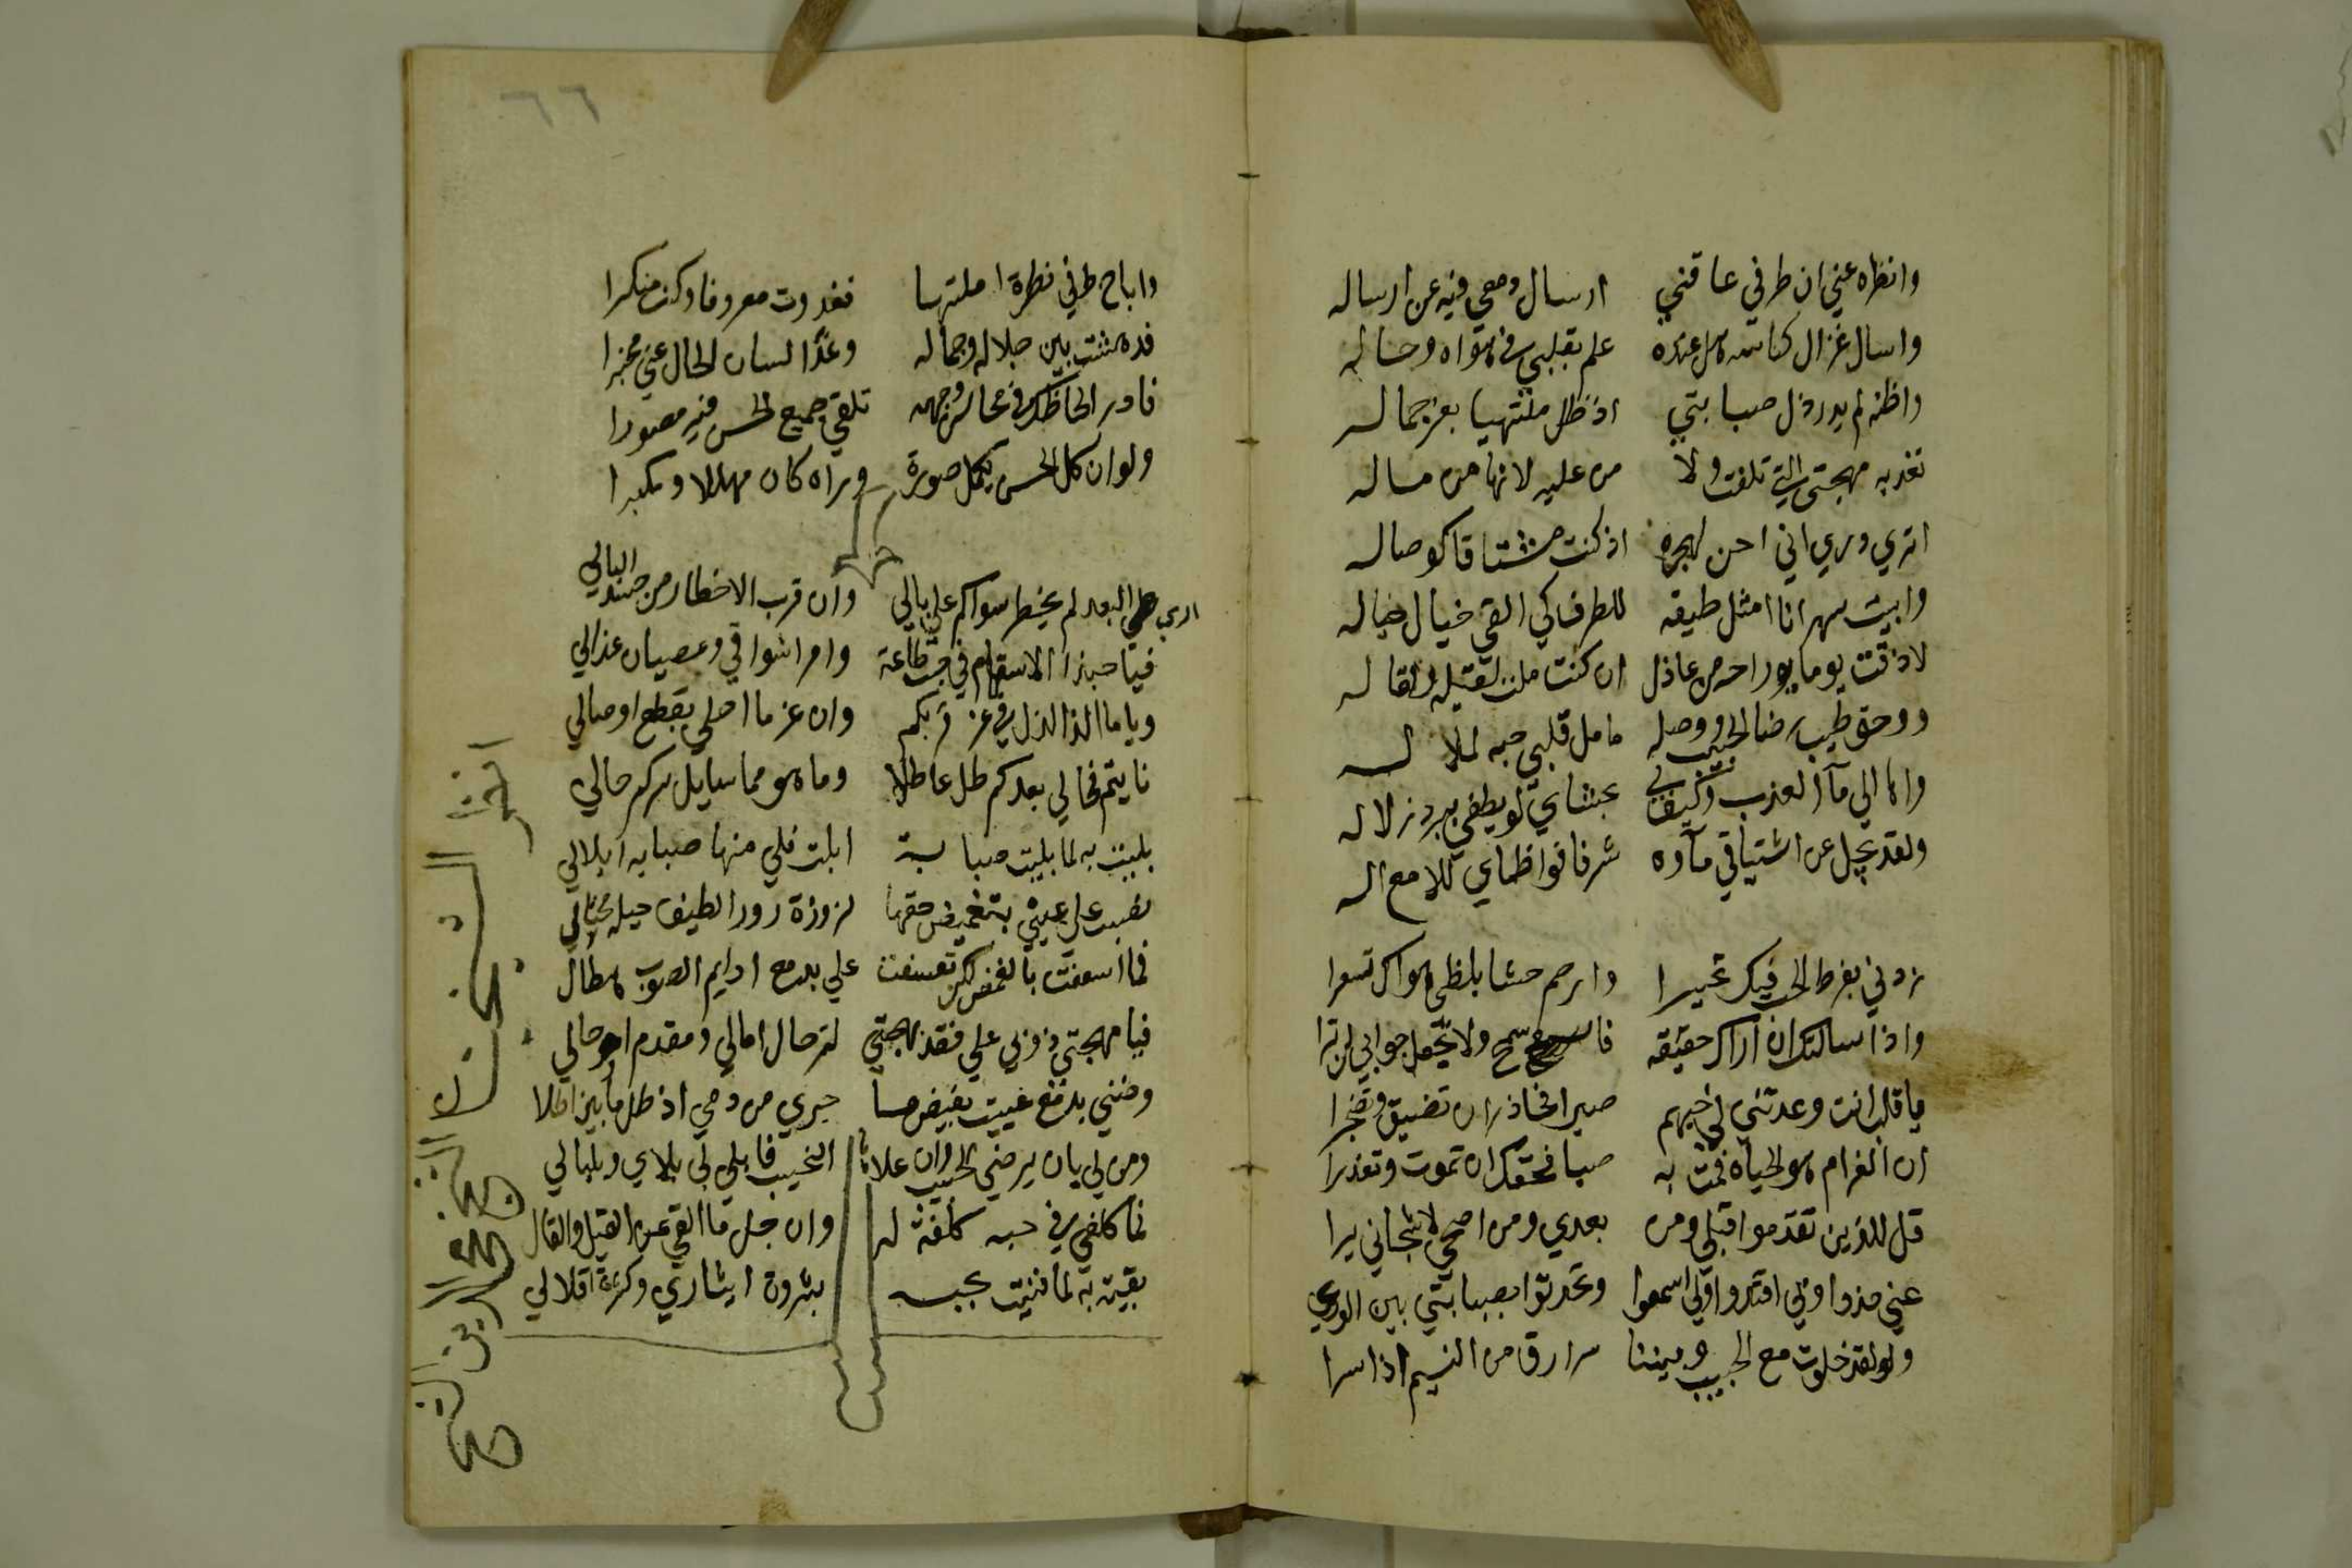 وانظره عني ان طرفي عاقني ارسال دمعي فيه عن ارساله
واسال غزال كناسه هل عنده علم بقلبي في هواه وحاله
واظنه لم يدر ذل صبابتي اذ ظل ملتهيا بعز جماله
تفديه مهجتي التي تلفت ولا من عليه لانها من ماله
اتري دري اني احن لهجره اذ كنت مشتاقا كوصاله
وابيت سهرانا امثل طيفه للطرف كي القي خيال خياله
لا ذقت يوما راحه من عاذل ان كنت ملت لقيله ولقاله
ووحق طيب رضا الحبيب ووصله ما مل قلبي حبه لملاله
واها الي مآ العذيب وكيف لي بحشاي لو يطفي ببرد زلاله
ولقد يجل عن اشتياقي مآوه شرفا فواظماي للامع اله
زدني بفرط الحب فيك تحيرا وارحم حشا بلظي هواك تسعرا
واذا سالتك ان اراك حقيقه فاسمح ولا تجعل جوابي لن ترا
ياقلب انت وعدتني في حبهم صبرا فحاذر ان تضيق وتضجرا
ان الغرام هو الحياه فمت به صبا فحقك ان تموت وتعذرا
قل للذين تقدموا قبلي ومن بعدي ومن اضحي لاشجاني يرا
عني خذوا وبي اقتدوا ولي اسمعوا وتحدثوا بصبابتي بين الوري
ولقد خلوت مع الحبيب وبيننا سرارق من النسيم اذا سرا
٦٦
واباح طرفي نظرة املتها فغدوت معروفا وكنت منكرا
فدهشت بين جلاله وجماله وغدا لسان الحال عني مخبرا
فادر لحاظك في محاسن وجهه تلقي جميع الحسن فيه مصورا
ولو ان كل الحسن يكمل صورة وراه كان مهللا ومكبرا
اري البعد لم يخطر سواكم علي بالي وان قرب الاخطار من جسدي البالي
فيا حبذا الاسقام في جنب طاعة اوامر اشواقي وعصيان عذالي
وياما الذ الذل في عز قربكم وان عز ما احلي بقطع اوصالي
نايتم فحالي بعدكم ظل عاطلا وما هو مما سا بل سركم حالي
بليت به لما بليت صبابة ابلت فلي منها صبابه ابلالي
نصبت علي عيني بتغميض جفنها لزورة زور الطيف حيله محتال
فما اسعفت بالغمض لكن تعسفت علي بدمع دايم الصوب هطال
فيا مهجتي ذوبي علي فقد بهجتي لترحال امالي ومقدم اوجالي
وضني بدمع غنيت بفيض ما جري من دمي اذ طل ما بين اطلال
ومن لي بان يرضي الحبيب وان علا النحيب فابلي لي بلاي وبلبالي
فما كلفي في حبه كلفة له وان جل ما القي عن القيل والقال
بقيت به لما فنيت بحبه بثروة ايثاري وكثرة اقلالي